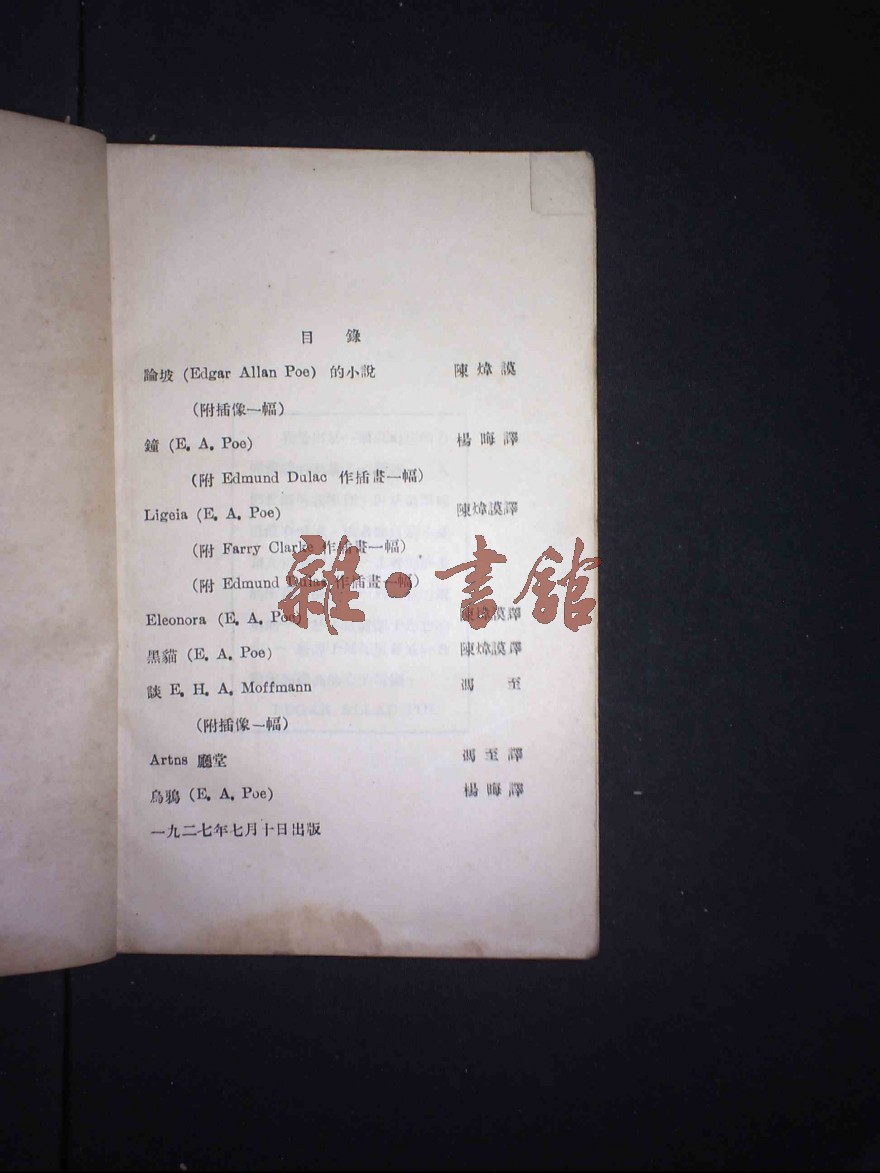 目 錄
論坡 (Edgar Allan Poe) 的小說 陳煒謨
(附插像一幅)
鐘 (E. A. Poe) 楊晦譯
(附 Edmund Dulac 作插畫一幅)
Ligeia (E. A. Poe) 陳煒謨譯
(附 Farry Clarke 作插畫一幅)
(附 Edmund Dulac 作插畫一幅)
雜·書館
Eleonora (E. A. Poe) 陳煒謨譯
黑貓 (E. A. Poe) 陳煒謨譯
談 E. H. A. Moffmann 馮 至
(附插像一幅)
Artns 廳堂 馮至譯
烏鴉 (E. A. Poe) 楊晦譯
一九二七年七月十日出版